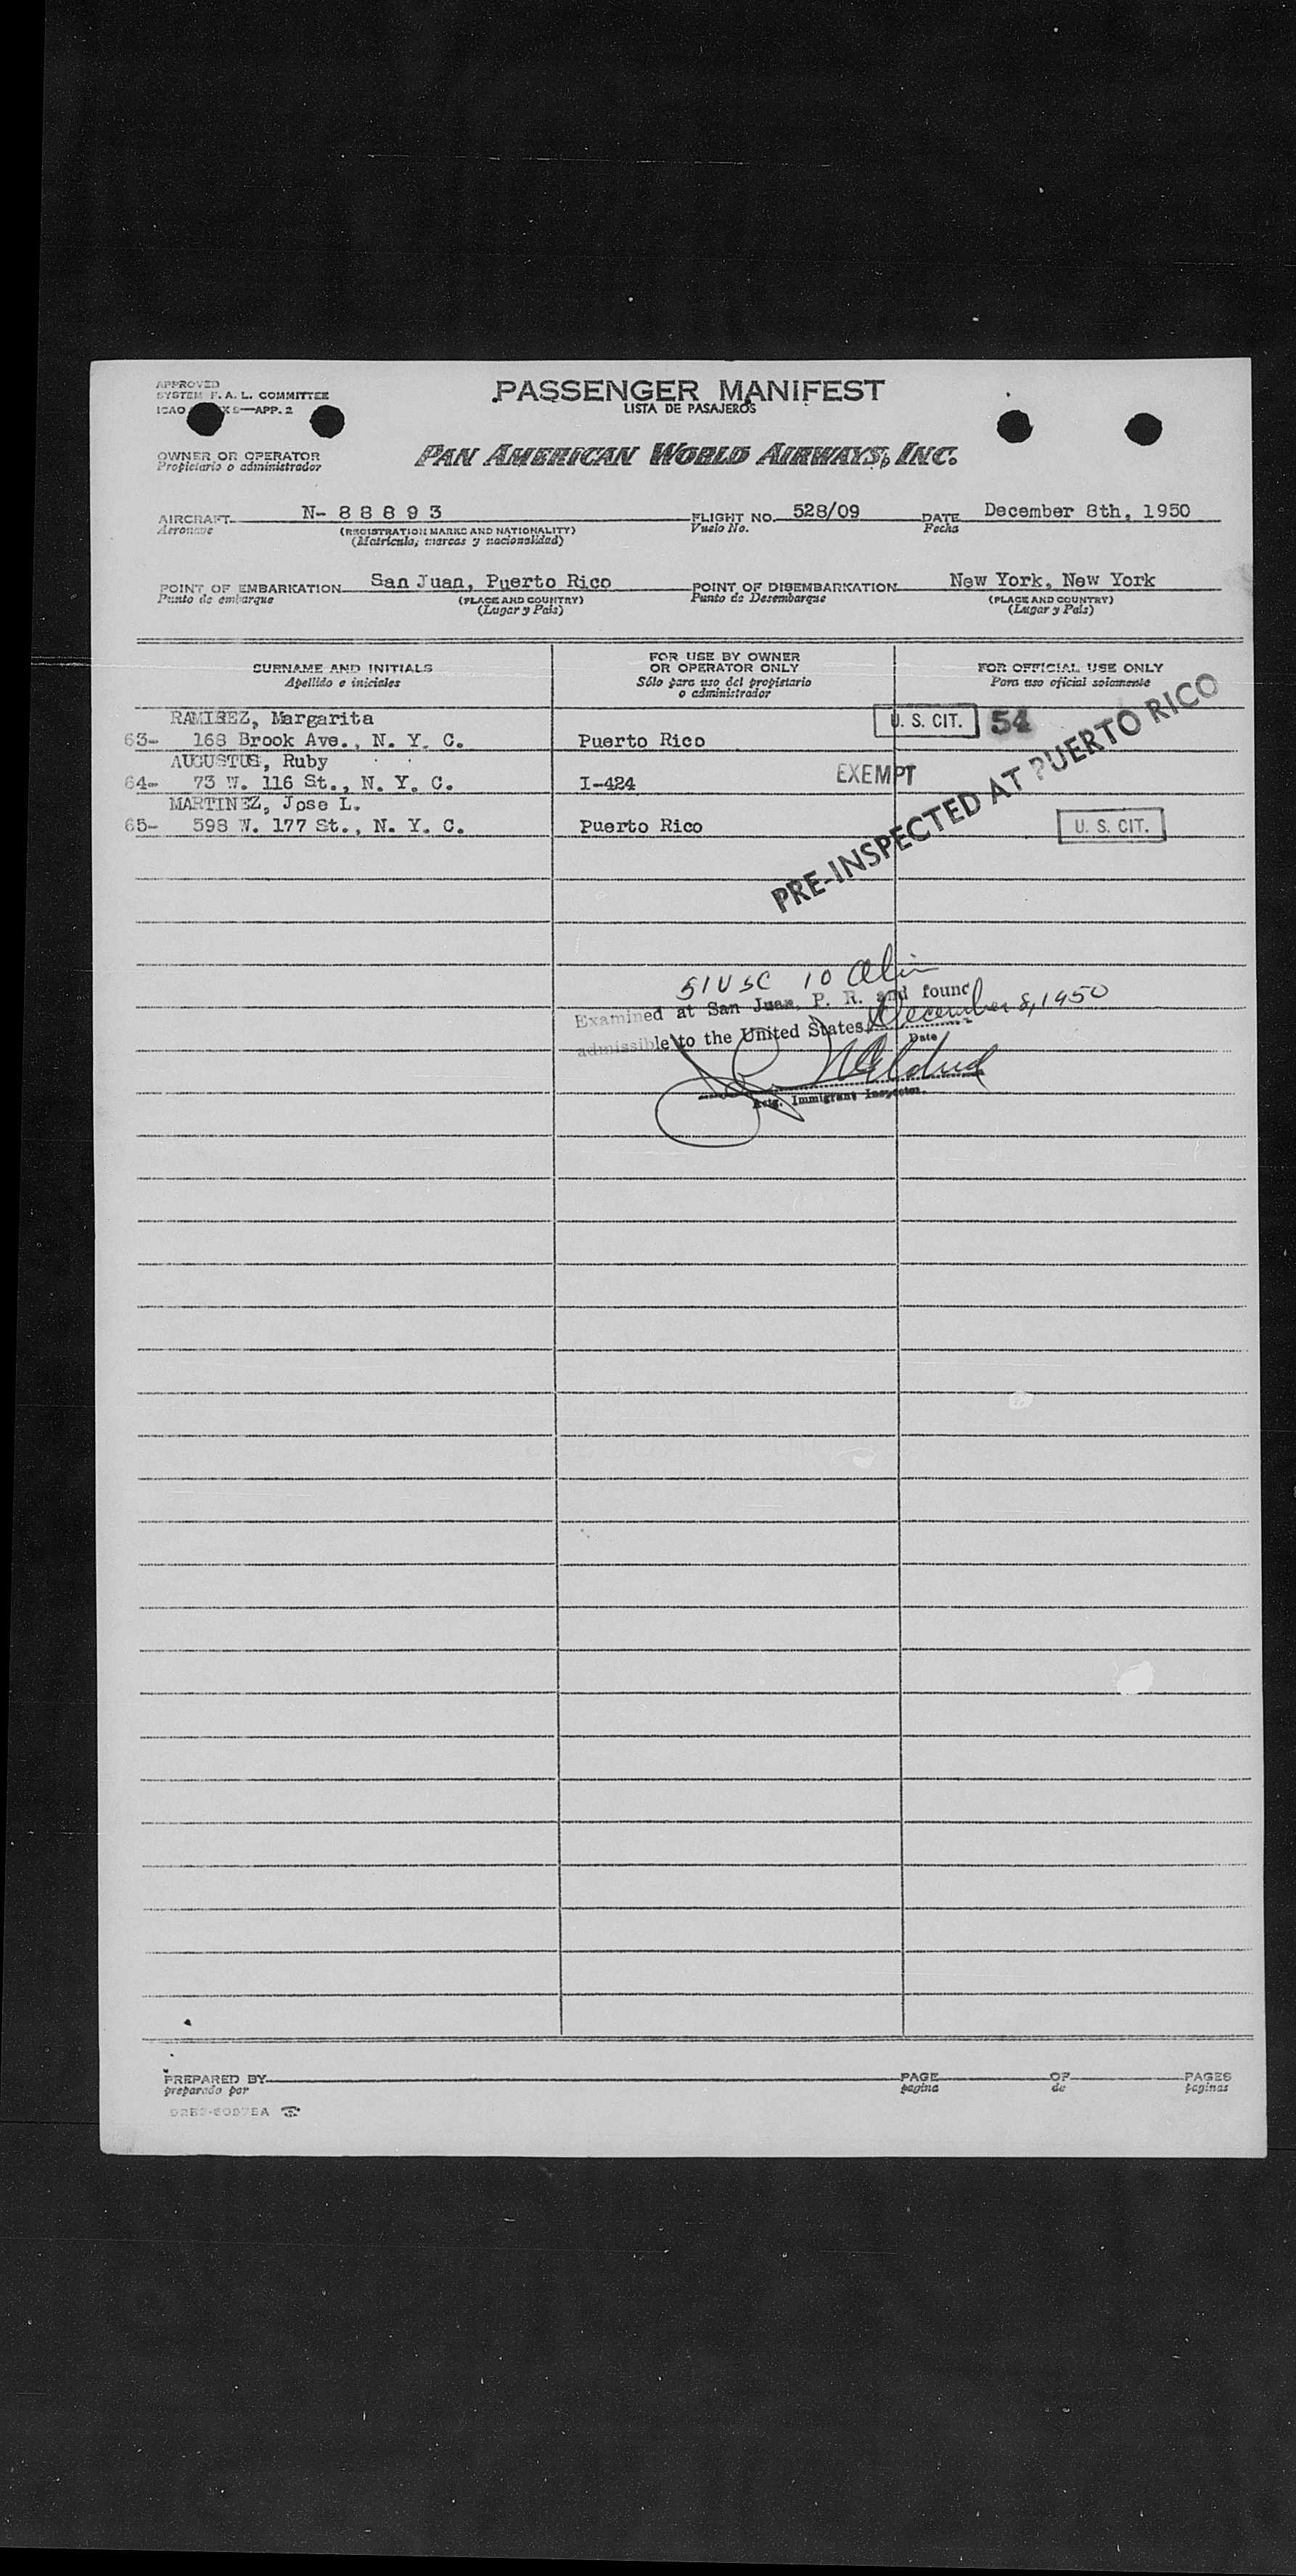 APPROVED
SYSTEM F. A. L. COMMITTEE
ICAO X 9—APP. 2
PASSENGER MANIFEST
LISTA DE PASAJEROS
OWNER OR OPERATOR
Propietario o administrador
PAN AMERICAN WORLD AIRWAYS, INC.
AIRCRAFT N- 8 8 8 9 3 FLIGHT NO. 528/09 DATE December 8th, 1950
Aeronave (REGISTRATION MARKS AND NATIONALITY) Vuelo No. Fecha
(Matrícula, marcas y nacionalidad)
POINT OF EMBARKATION San Juan, Puerto Rico POINT OF DISEMBARKATION New York, New York
Punto de embarque (PLACE AND COUNTRY) Punto de Desembarque (PLACE AND COUNTRY)
(Lugar y País) (Lugar y País)
SURNAME AND INITIALS
Apellido e iniciales
FOR USE BY OWNER
OR OPERATOR ONLY
Sólo para uso del propietario
o administrador
FOR OFFICIAL USE ONLY
Para uso oficial solamente
RAMIREZ, Margarita
63- 168 Brook Ave., N. Y. C. Puerto Rico U. S. CIT. 54
AUGUSTUS, Ruby
64- 73 W. 116 St., N. Y. C. I-424 EXEMPT
MARTINEZ, Jose L.
65- 598 W. 177 St., N. Y. C. Puerto Rico U. S. CIT.
PRE-INSPECTED AT PUERTO RICO
51 USC 10 Alin
Examined at San Juan, P. R. and found
admissible to the United States December 8, 1950
Date
Actg. Immigrant Inspector.
PREPARED BY PAGE OF PAGES
preparado por página de páginas